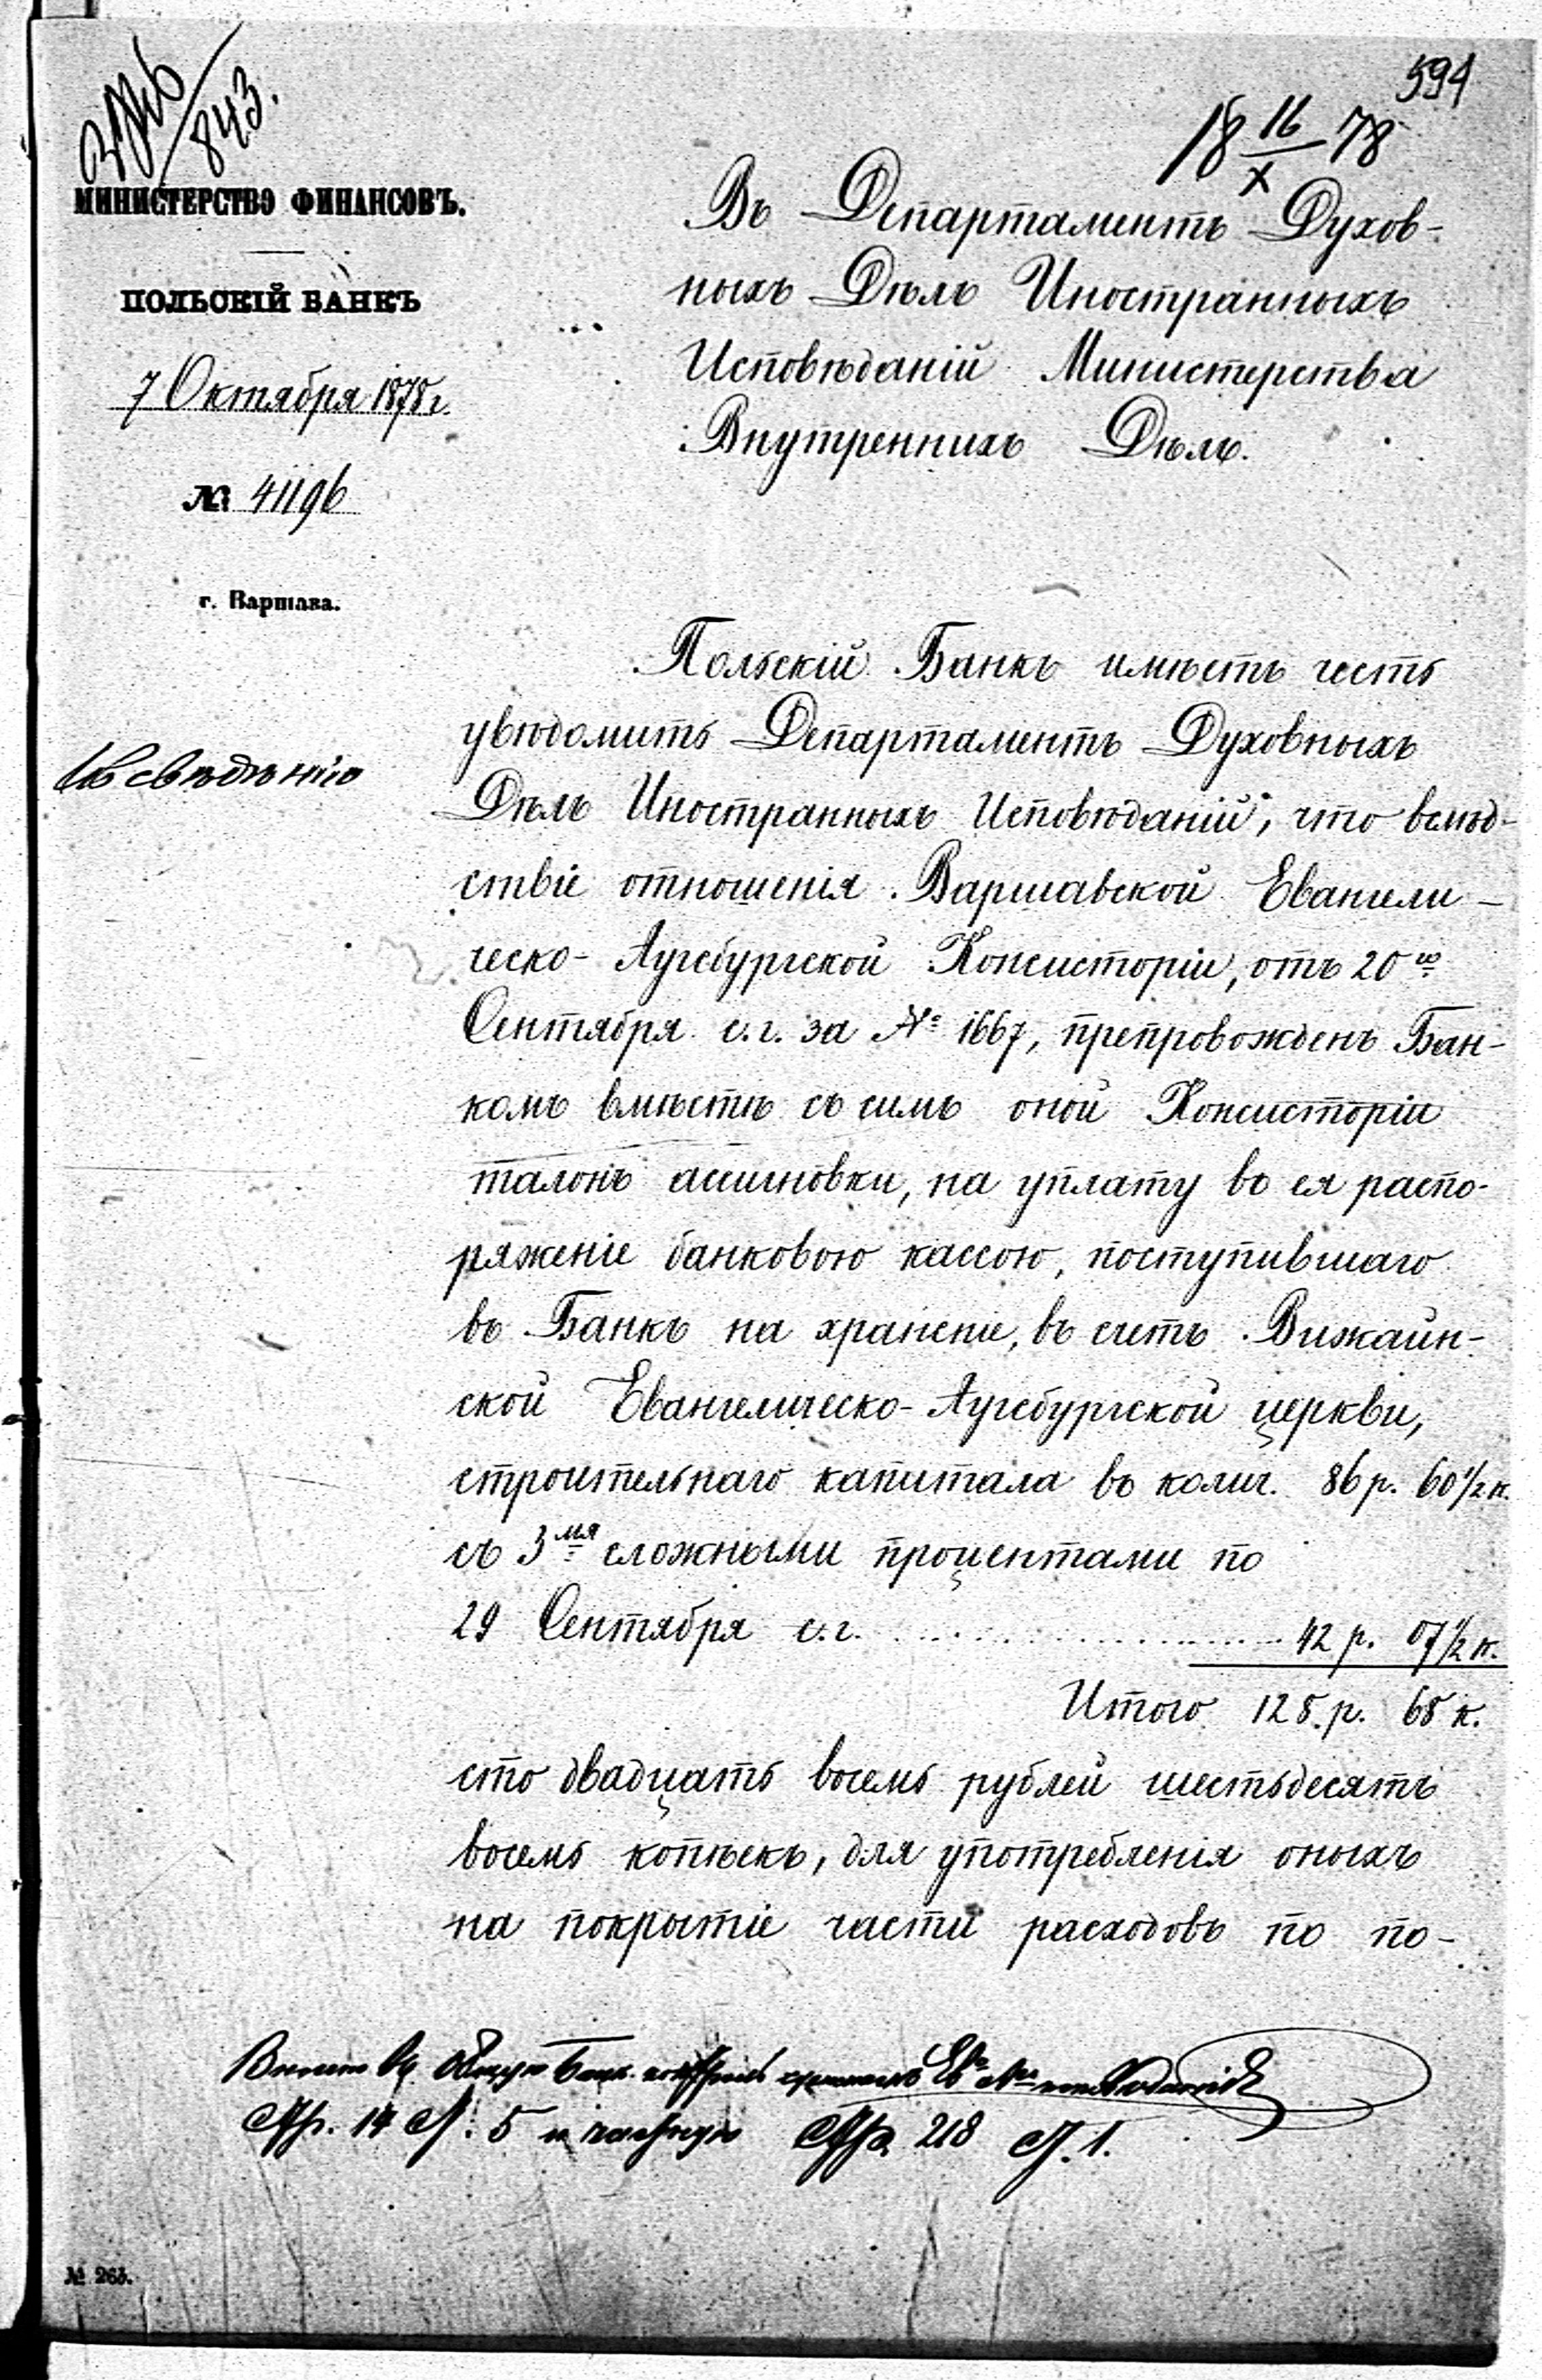 594
18 16/X 78
843.
МИНИСТЕРСТВО ФИНАНСОВЪ.
ПОЛЬСКІЙ БАНКЪ
7 Октября 1878 г.
№ 41196
г. Варшава.
Въ Департаментъ Духов-
ныхъ Дѣлъ Иностранныхъ
Исповѣданій Министерства
Внутреннихъ Дѣлъ.
Къ свѣдѣнію
Польскій Банкъ имѣетъ честь
увѣдомить Департаментъ Духовныхъ
Дѣлъ Иностранныхъ Исповѣданій, что вслѣд-
ствіе отношенія Варшавской Евангели-
ческо-Аугсбургской Консисторіи, отъ 20го
Сентября с.г. за № 1667, препровожденъ Бан-
комъ вмѣстѣ съ симъ оной Консисторіи
талонъ ассигновки, на уплату въ ея распо-
ряженіе банковою кассою, поступившаго
въ Банкъ на храненіе, въ счетъ Вижайн-
ской Евангелическо-Аугсбургской церкви,
строительнаго капитала въ колич. 86 р. 60 1/2 к.
съ 3мя сложными процентами по
29 Сентября с.г. .......................... 42 р. 07 1/2 к.
Итого 128 р. 68 к.
сто двадцать восемь рублей шестьдесятъ
восемь копѣекъ, для употребленія оныхъ
на покрытіе части расходовъ по по-
14 5 и частную 218 1.
№ 263.